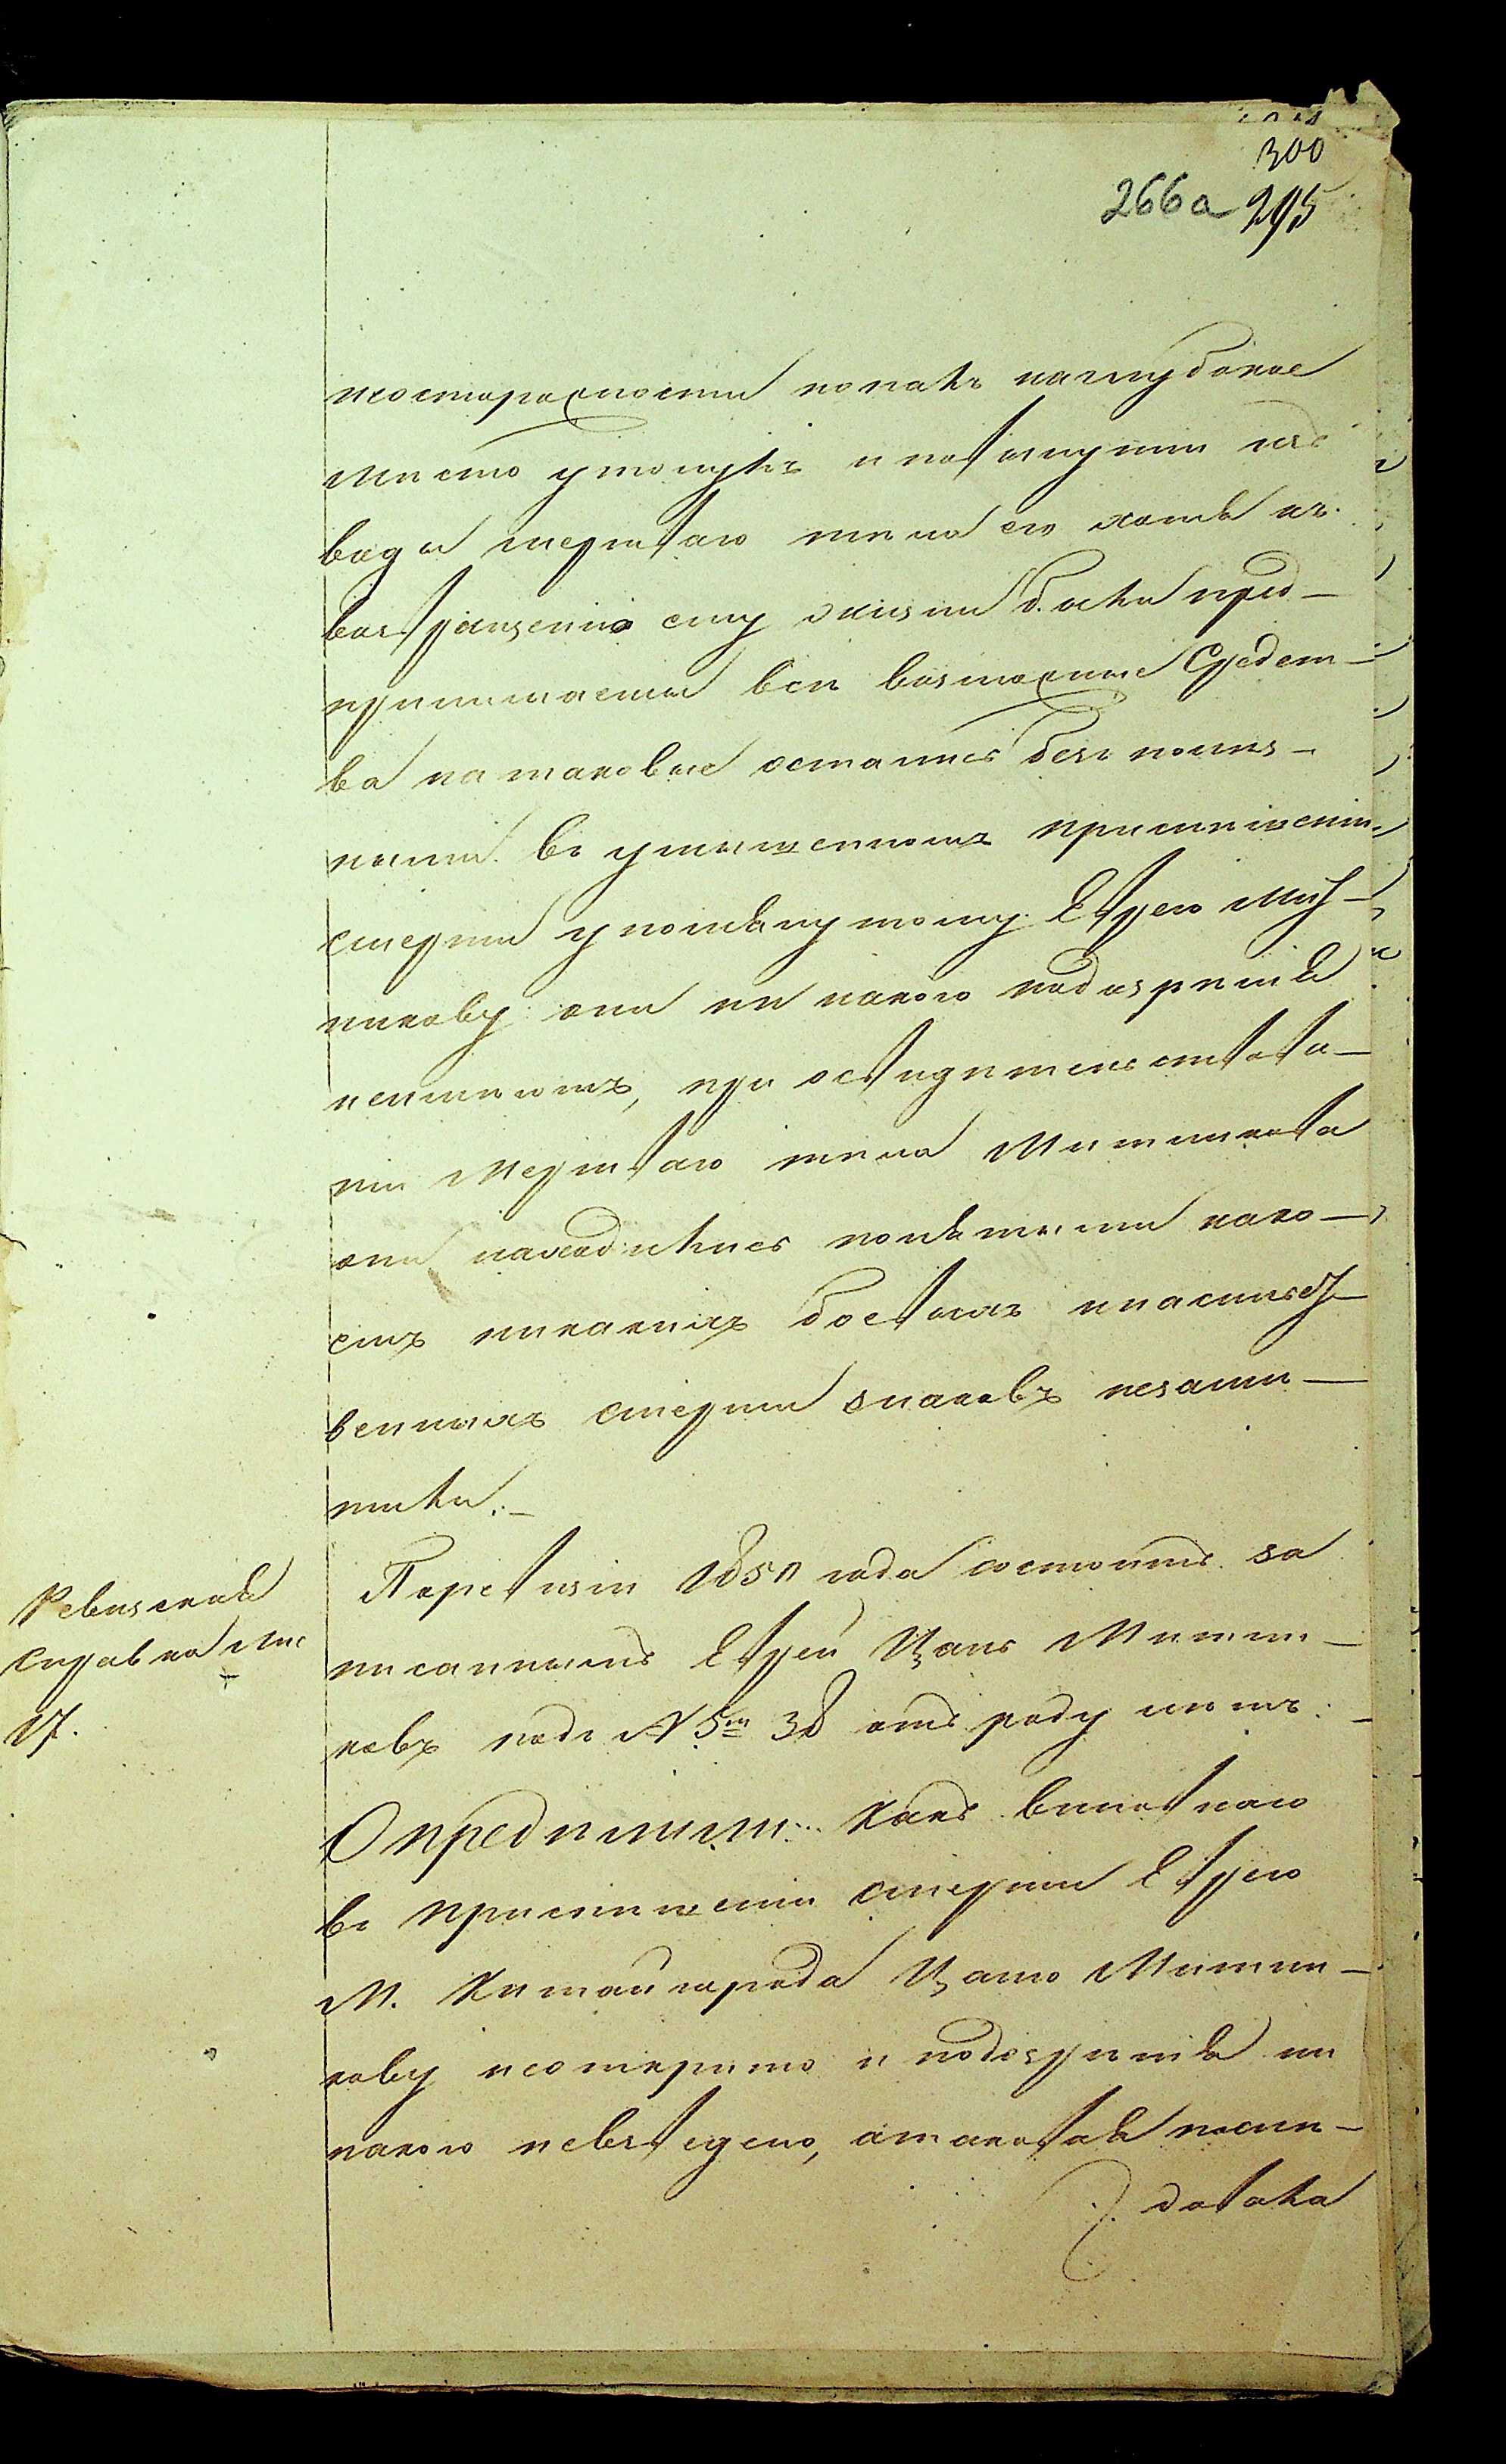 300
266а 295
неосторожности попалъ наглубокое
мѣсто утонулъ и повытнутіи изъ
воды мертваго тѣла его хотя къ
возвращенію ему жизни были пред–
принимаемы всѣ возможные Средст–
ва натаковые остались безъ полез–
ными. въ умышленномъ причиненіи
смерти упомянутому Еврею Мит–
никову они ни какого подозрѣнія
неимѣютъ, при освидѣтельствова–
ніи Мертваго тѣла Митникова
они находились понятыми на ко–
емъ никакихъ боевыхъ инасильст–
венныхъ смерти знаковъ незамѣ–
тили.–
Ревизская
справка лис
17.
Поревизіи 1850 года состоитъ за
писаннымъ Еврей Цаль Митни–
ковъ подъ № 5м 38 отъ роду лѣтъ.–
Опредѣлили: Какъ виновнаго
въ причиненіи смерти Еврею
М. Китайгорода Цалю Митни–
кову неоткрыто и подозрѣнія ни
какого невыведено, атаковая послѣ–
довала